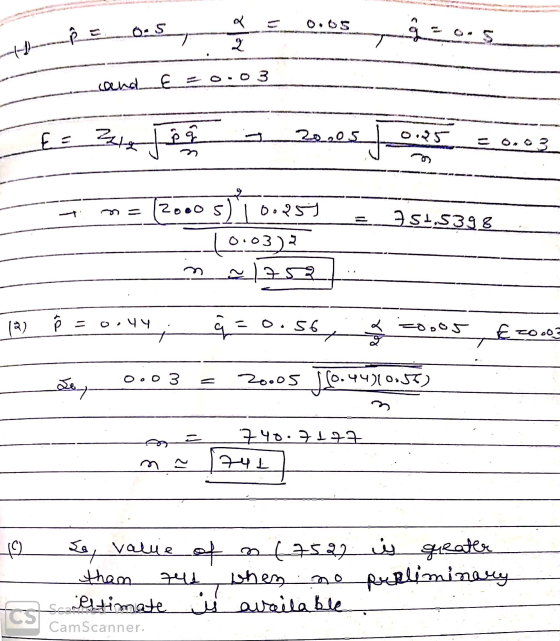 (1) p̂ = 0.5, α/2 = 0.05, q̂ = 0.5
and E = 0.03
E = Zα/2 √(p̂q̂/n) → Z0.05 √(0.25/n) = 0.03
→ n = (Z0.05)² (0.25) / (0.03)2 = 751.5398
n ≃ 752
(2) p̂ = 0.44, q̂ = 0.56, α/2 = 0.05, E = 0.03
So, 0.03 = Z0.05 √((0.44)(0.56)/n)
n = 740.7177
n ≃ 741
(C) So, value of n (752) is greater
than 741, when no preliminary
estimate is available.
CS
CamScanner.